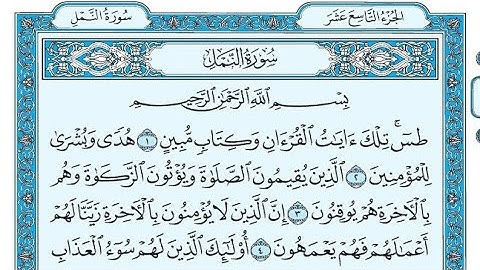 الجزء التاسع عشر
سورة النمل
سُورَةُ النَّمْلِ
بِسْمِ اللَّهِ الرَّحْمَٰنِ الرَّحِيمِ
طسٓۚ تِلْكَ ءَايَٰتُ الْقُرْءَانِ وَكِتَابٍ مُّبِينٍ ١ هُدًى وَبُشْرَىٰ
لِلْمُؤْمِنِينَ ٢ الَّذِينَ يُقِيمُونَ الصَّلَوٰةَ وَيُؤْتُونَ الزَّكَوٰةَ وَهُم
بِالْءَاخِرَةِ هُمْ يُوقِنُونَ ٣ إِنَّ الَّذِينَ لَا يُؤْمِنُونَ بِالْءَاخِرَةِ زَيَّنَّا لَهُمْ
أَعْمَٰلَهُمْ فَهُمْ يَعْمَهُونَ ٤ أُوْلَٰٓئِكَ الَّذِينَ لَهُمْ سُوٓءُ الْعَذَابِ